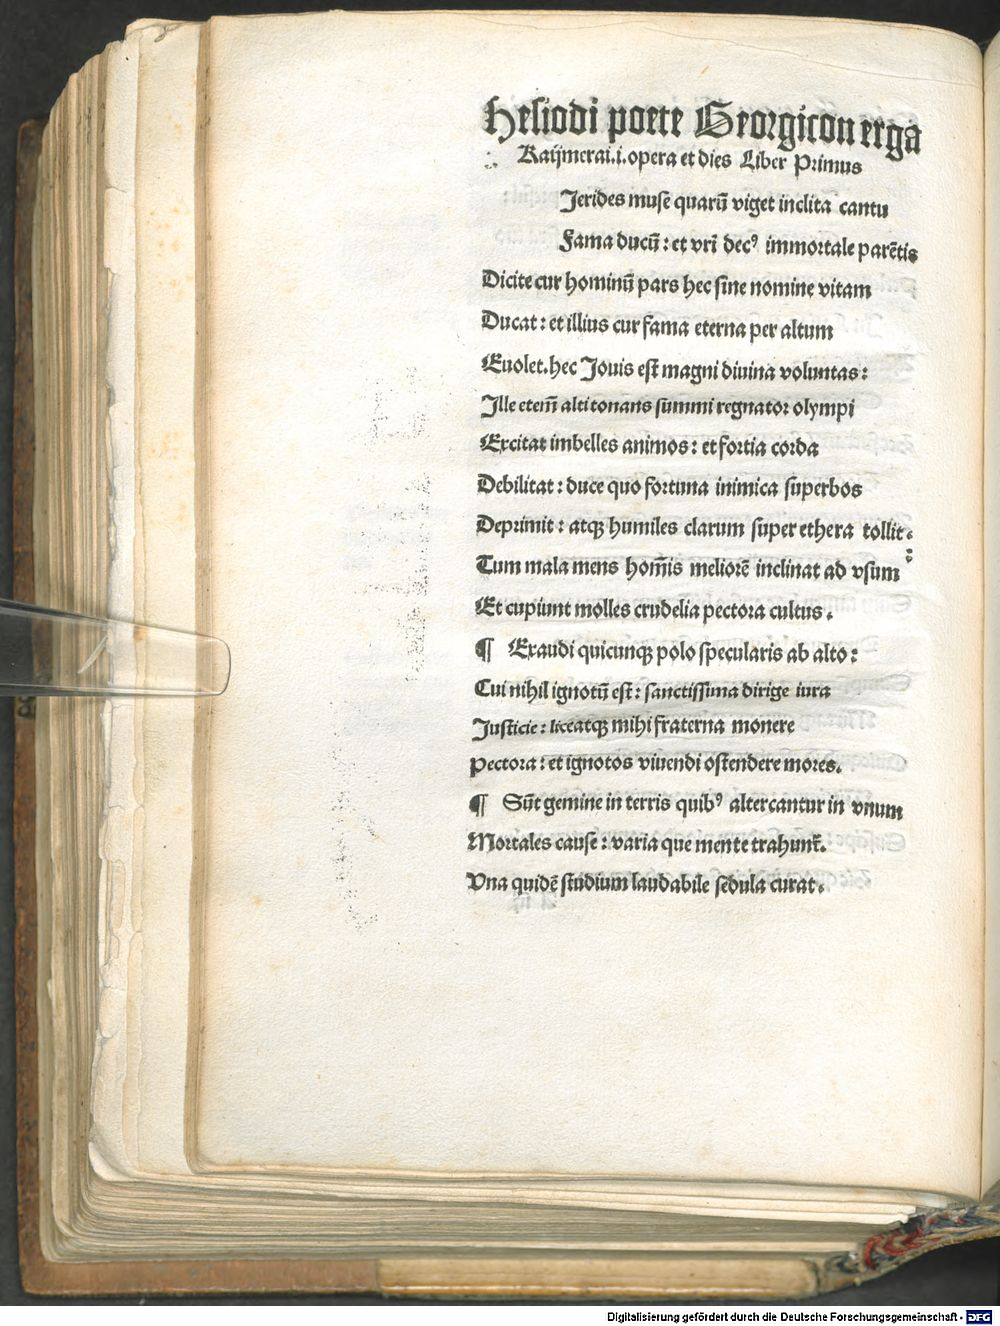 Hesiodi poete Georgicon erga
Kaijmerai.i.opera et dies Liber Primus
Jerides muse quarū viget inclita cantu
Fama ducū: et vr̄i decꝰ immortale parētis
Dicite cur hominū pars hec sine nomine vitam
Ducat: et illius cur fama eterna per altum
Euolet.hec Jouis est magni diuina voluntas:
Ille etem̄ altitonans summi regnator olympi
Excitat imbelles animos: et fortia corda
Debilitat: duce quo fortuna inimica superbos
Deprimit: atqꝫ humiles clarum super ethera tollit:
Tum mala mens hom̄is meliorē inclinat ad vsum
Et cupiunt molles crudelia pectora cultus.
¶ Exaudi quicunqꝫ polo specularis ab alto:
Cui nihil ignotū est: sanctissima dirige iura
Justicie: liceatqꝫ mihi fraterna monere
Pectora: et ignotos viuendi ostendere mores.
¶ Sūt gemine in terris quibꝰ altercantur in vnum
Mortales cause: varia que mente trahunt̄.
Vna quidē studium laudabile sedula curat.
Digitalisierung gefördert durch die Deutsche Forschungsgemeinschaft - DFG